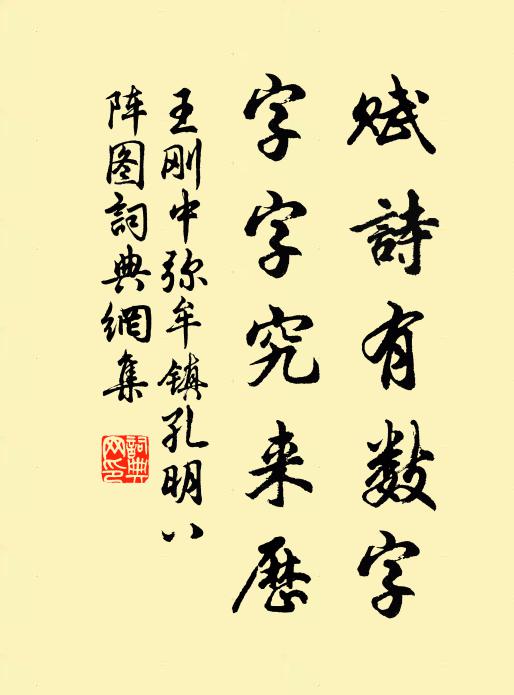 赋詩有数字
字字究来歷
王刚中弥牟镇孔明八
阵图詞典網集
詞典网印